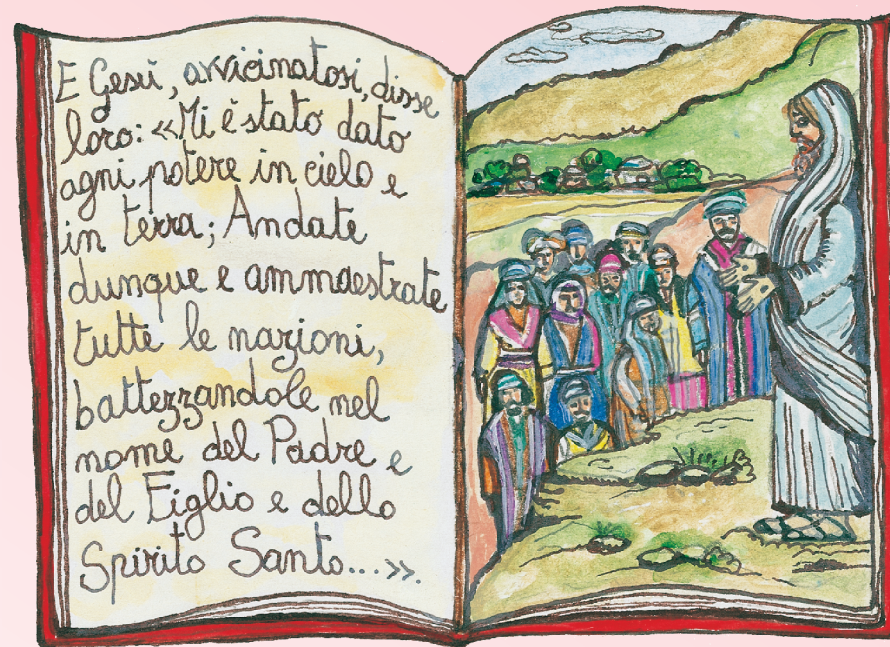 E Gesù, avvicinatosi, disse
loro: «Mi è stato dato
agni potere in cielo e
in terra; Andate
dunque e ammaestrate
tutte le nazioni,
battezzandole nel
nome del Padre e
del Figlio e dello
Spirito Santo...».